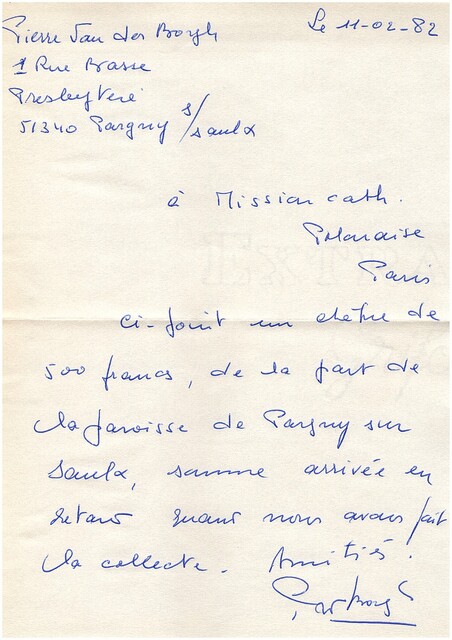 Pierre Van der Borgh
Le 11-02-82
1 Rue Basse
Presbytère
51340 Pargny s/saulx
à Mission cath.
Polonaise
Paris
ci-joint un chèque de
500 francs, de la part de
la paroisse de Pargny sur
Saulx, somme arrivée en
retard quand nous avons fait
la collecte. Amitiés.